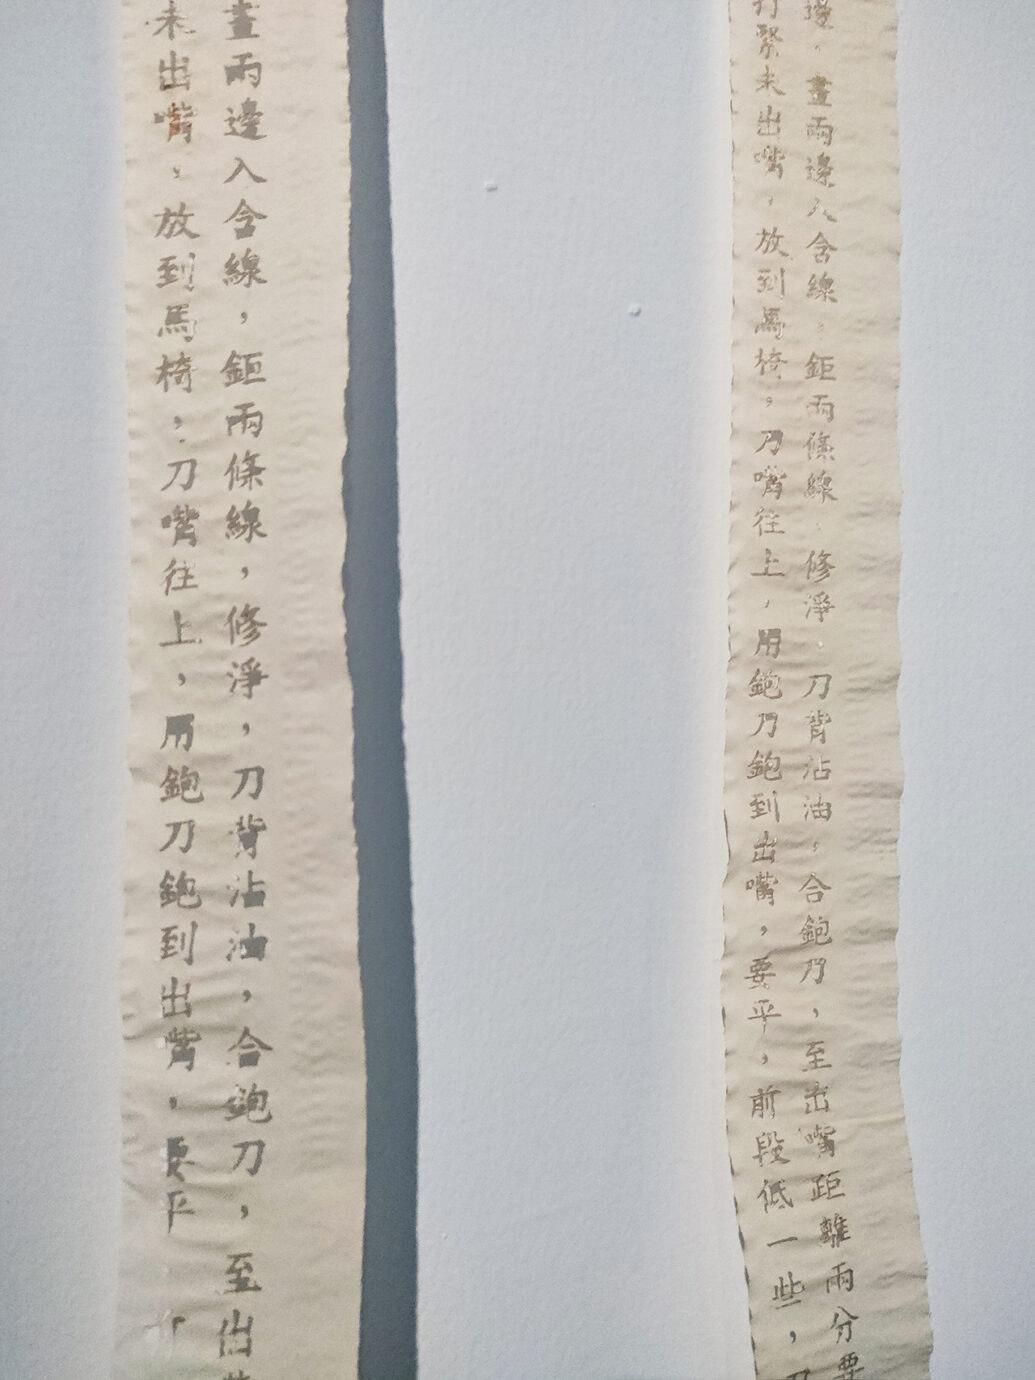 邊，畫兩邊入含線，鉅兩條線，修淨，刀背沾油，合鉋刀，至出嘴距離兩分要
打緊未出嘴，放到馬椅，刀嘴往上，用鉋刀鉋到出嘴，要平，前段低一些，
畫兩邊入含線，鉅兩條線，修淨，刀背沾油，合鉋刀，至出
未出嘴，放到馬椅，刀嘴往上，用鉋刀鉋到出嘴，要平